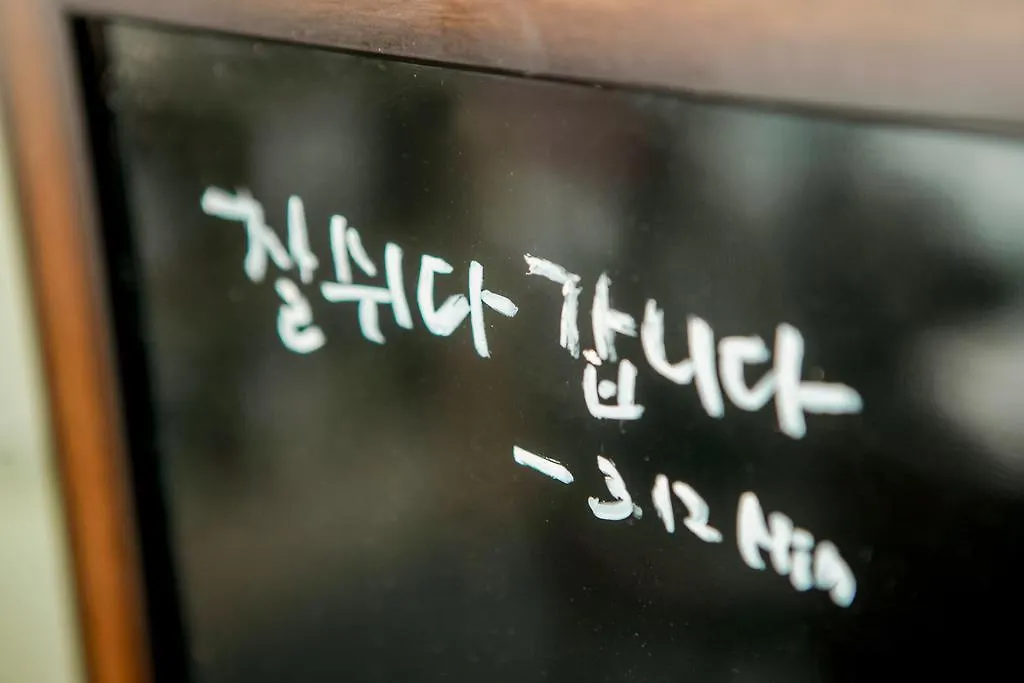 잘쉬다 갑니다
- 3.12 Min